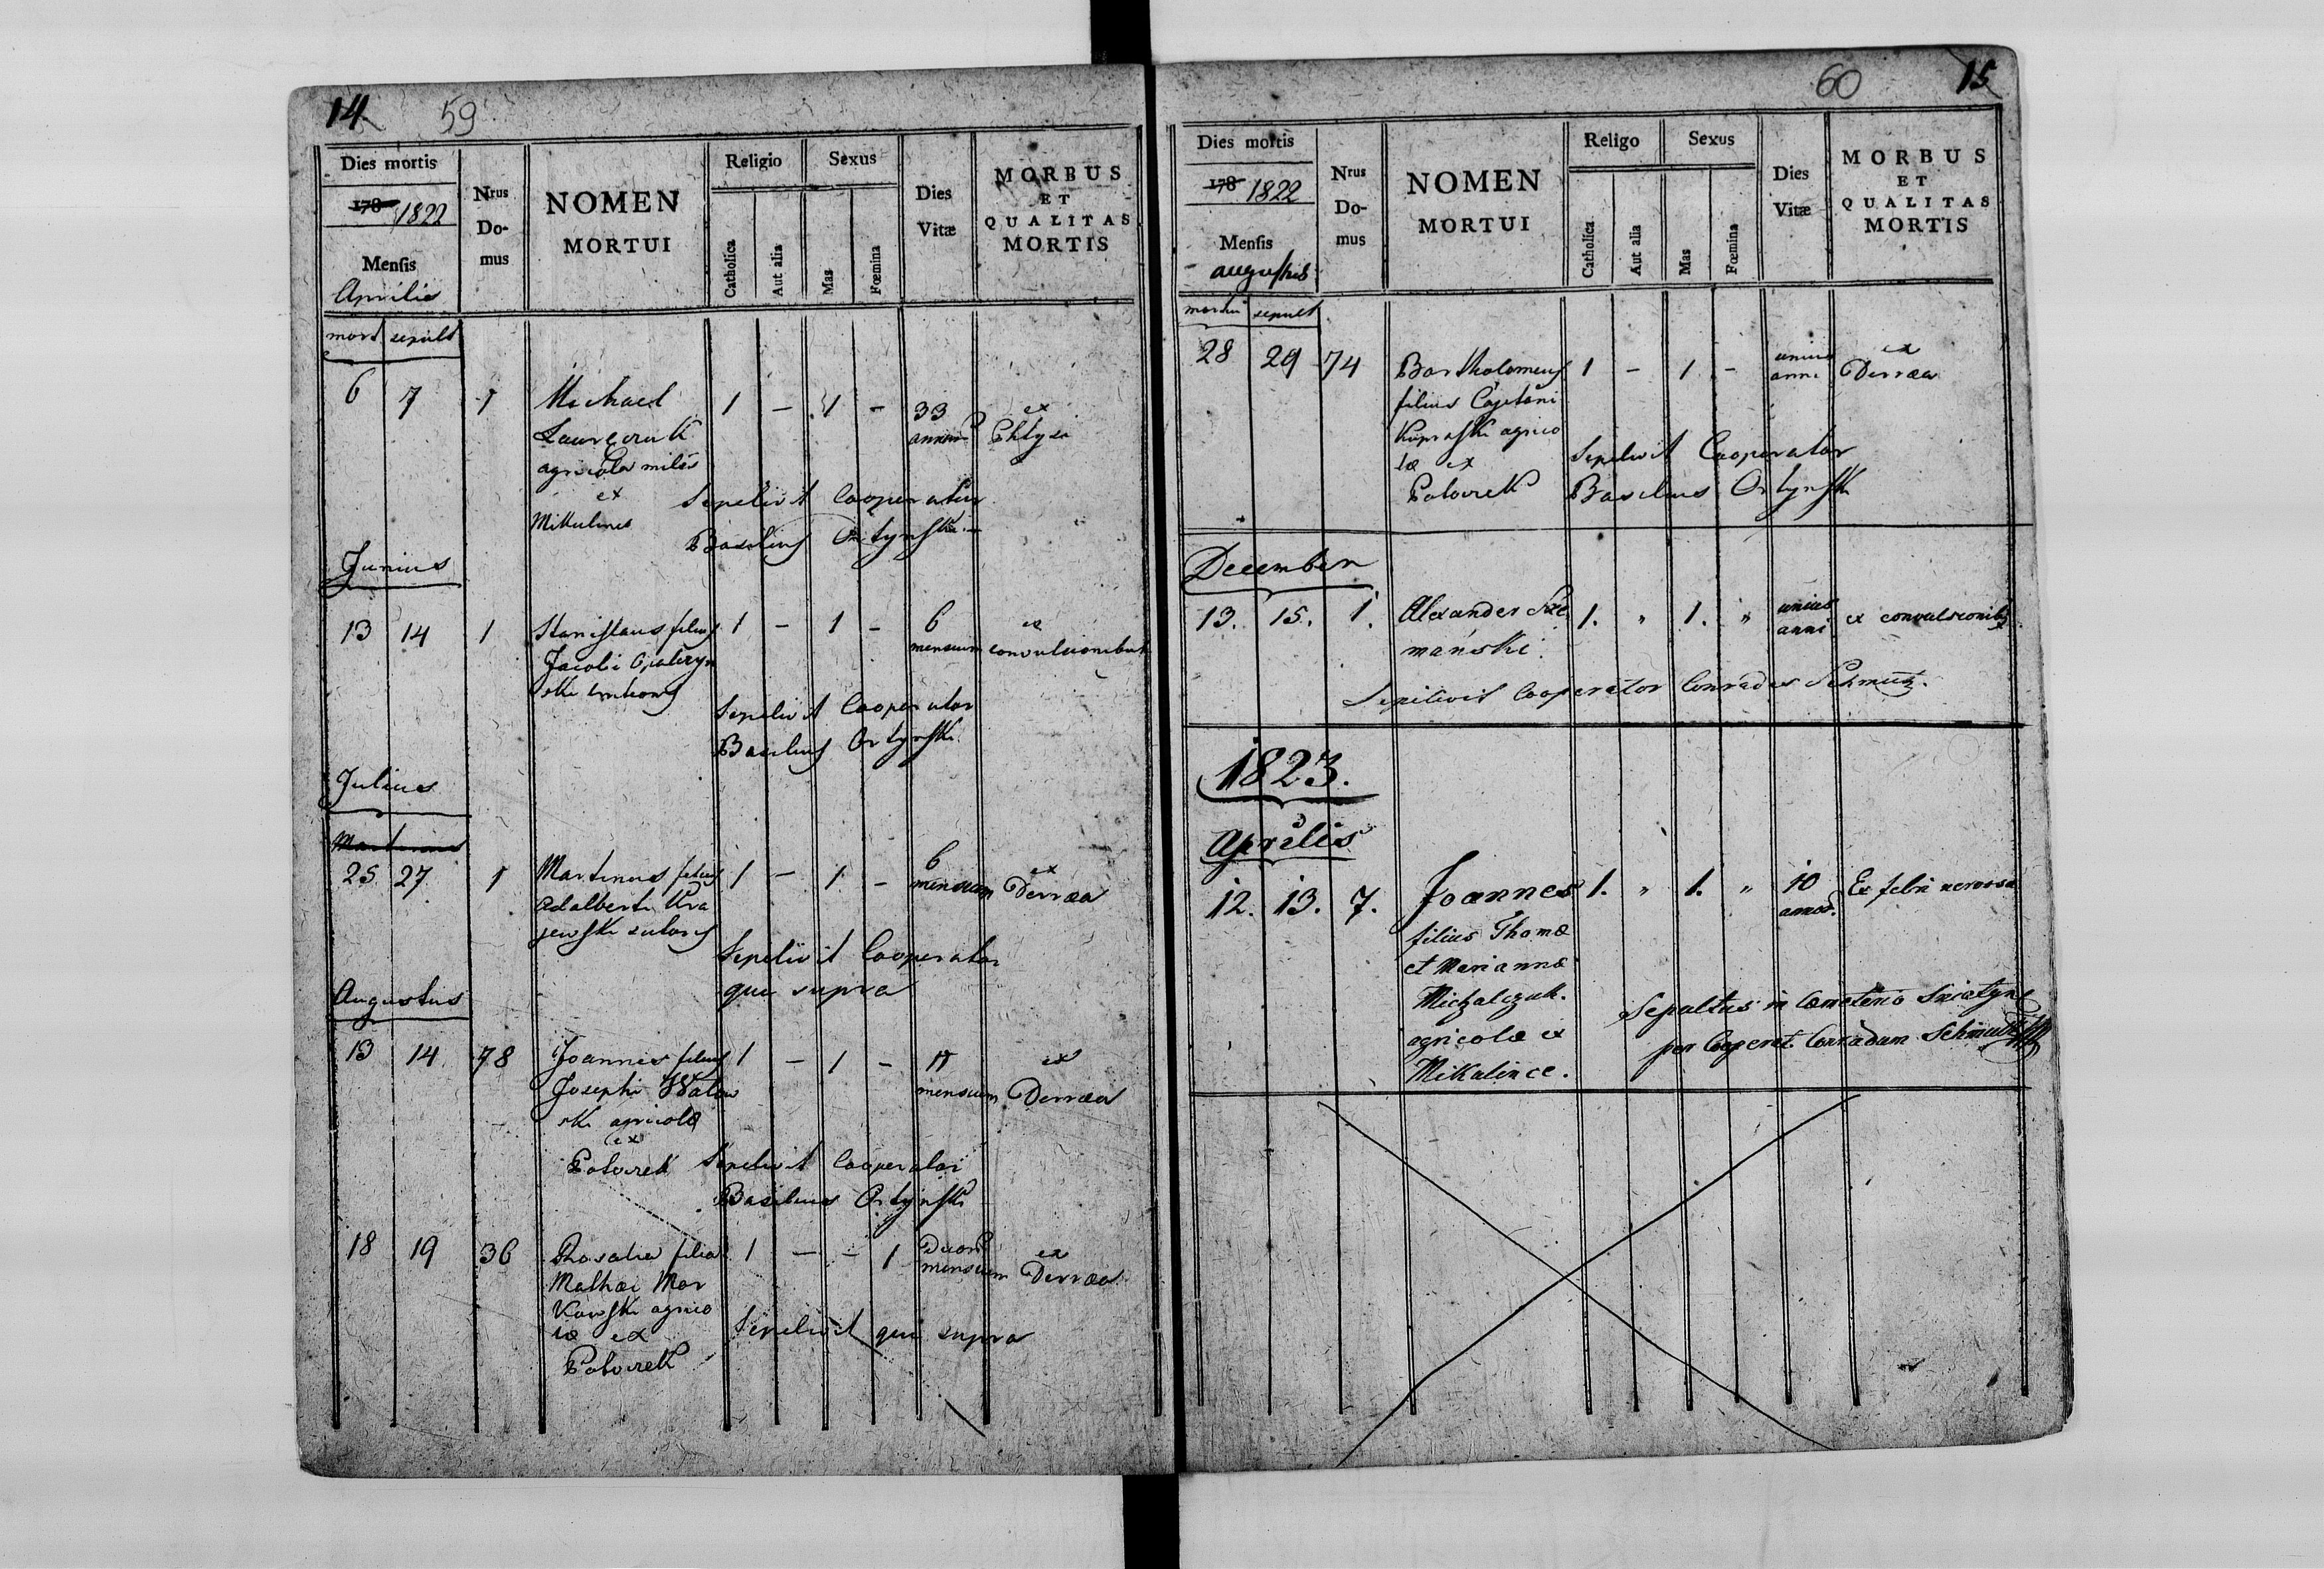 14 59
Dies mortis
178 1822
Mensis
Aprilis
Nrus
Do-
mus
NOMEN
MORTUI
Religio
Catholica
Aut alia
Sexus
Mas
Fœmina
Dies
Vitæ
MORBUS
ET
QUALITAS
MORTIS
mort sepult
6 7 1 Michael 1 - 1 - 33 ex
annor Phtysi
agricola
ex Sepelivit Cooperator
Mikulince
Basilius Ortynski
Junius
13 14 1 Stanislaus filius 1 - 1 - 6 ex
Jacobi mensium convulsionibus
ski
Sepelivit Cooperator
Basilius Ortynski
Julius
25 27 1 Martinus filius 1 - 1 - 6 ex
Adalberti Kra mensium Derræa
jewski sutoris
Sepelivit Cooperator
qui supra
Augustus
13 14 78 Joannes filius 1 - 1 - ex
Josephi mensium Derræa
ski agricolæ
ex
Potoczek Sepelivit Cooperator
Basilius Ortynski
18 19 36 Rosalia filia 1 - - 1 Duor ex
Mathæi Mar mensium Derræa
kowski agrico
læ ex Sepelivit qui supra
Potoczek
60 15
Dies mortis
178 1822
Mensis
augustus
Nrus
Do-
mus
NOMEN
MORTUI
Religo
Catholica
Aut alia
Sexus
Mas
Fœmina
Dies
Vitæ
MORBUS
ET
QUALITAS
MORTIS
mortui sepult
28 29 74 Bartholomeus 1 - 1 - unius ex
filius Cajetani anni Derræa
agrico
læ ex Sepelivit Cooperator
Potoczek Basilius Ortynski
December
13. 15. 1. Alexander 1. " 1. " unius ex convulsionib
mański anni
Sepelivit Cooperator Conrades Schmutz.
1823.
Aprilis
12. 13. 7. Joannes 1. " 1. " 10 Ex febri nervosa
annor.
filius Thomæ
et Mariannæ
Michalczuk. Sepultus in Cœmeterio Sniatyne
agricolæ ex per Cooperat. Conradum Schmutz
Mikulince.